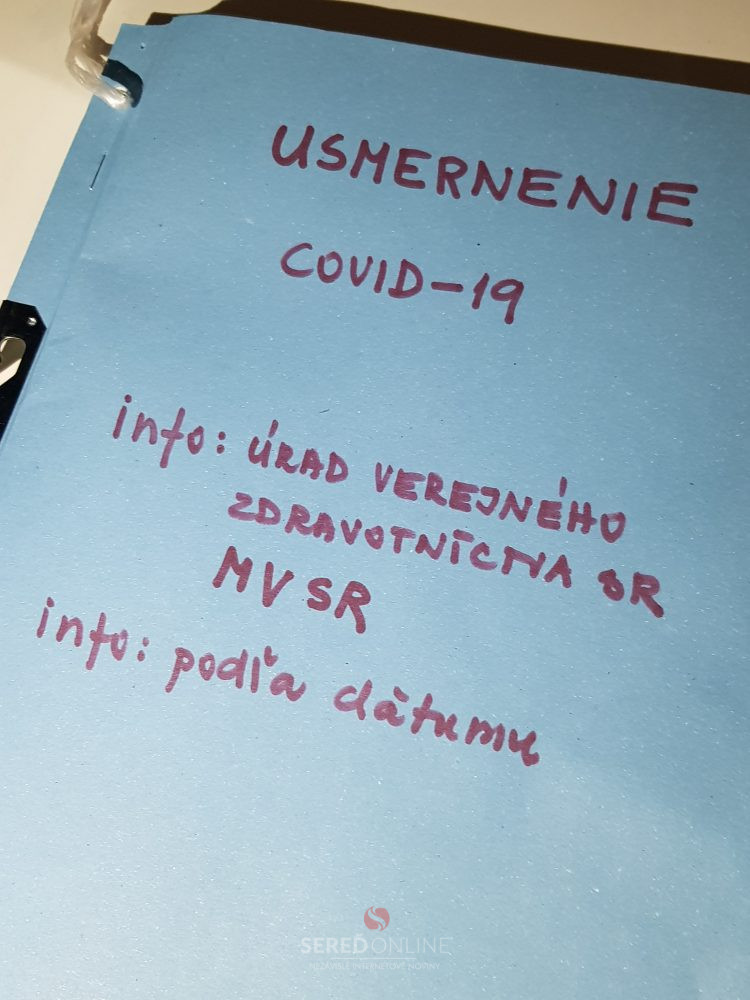 USMERNENIE
COVID-19
info: ÚRAD VEREJNÉHO
ZDRAVOTNÍCTVA SR
MV SR
info: podľa dátumu
SEREĎONLINE